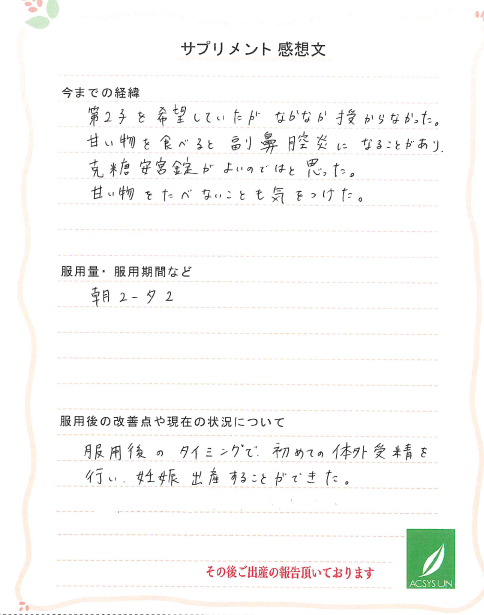 サプリメント 感想文
今までの経緯
第2子を希望していたが なかなか 授からなかった。
甘い物を食べると 副鼻腔炎に なることがあり、
克糖安宮錠がよいのではと思った。
甘い物をたべないことも気をつけた。
服用量・服用期間など
朝2-夕2
服用後の改善点や現在の状況について
服用後のタイミングで、初めての体外受精を
行い、妊娠出産することができた。
その後ご出産の報告頂いております
ACSYSUN